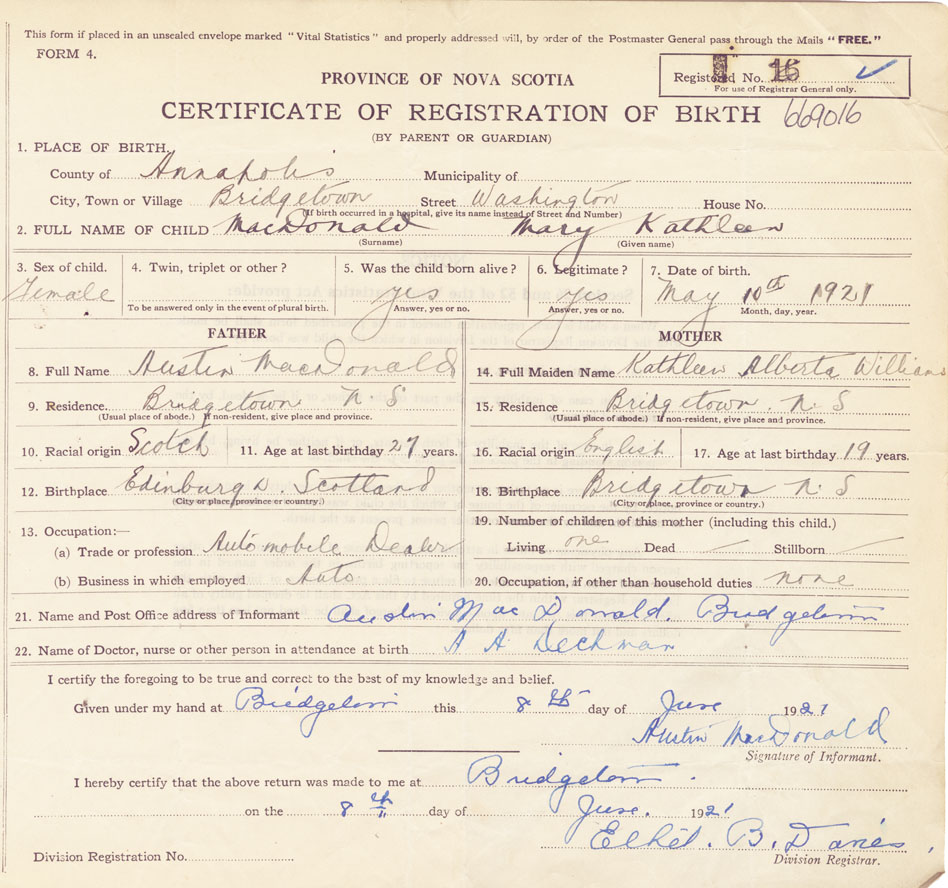 This form if placed in an unsealed envelope marked "Vital Statistics" and properly addressed will, by order of the Postmaster General pass through the Mails "FREE."
FORM 4.
PROVINCE OF NOVA SCOTIA
Registered No. 16
For use of Registrar General only.
CERTIFICATE OF REGISTRATION OF BIRTH 669016
(BY PARENT OR GUARDIAN)
1. PLACE OF BIRTH.
County of Annapolis Municipality of
City, Town or Village Bridgetown Street Washington House No.
(If birth occurred in a hospital, give its name instead of Street and Number)
2. FULL NAME OF CHILD MacDonald Mary Kathleen
(Surname) (Given name)
3. Sex of child. 4. Twin, triplet or other? 5. Was the child born alive? 6. Legitimate? 7. Date of birth.
Female yes yes May 10th 1921
To be answered only in the event of plural birth. Answer, yes or no. Answer, yes or no. Month, day, year.
FATHER MOTHER
8. Full Name Austin MacDonald 14. Full Maiden Name Kathleen Alberta Williams
9. Residence. Bridgetown N S 15. Residence Bridgetown. N. S
(Usual place of abode.) If non-resident, give place and province. (Usual place of abode.) If non-resident, give place and province.
10. Racial origin Scotch 11. Age at last birthday 27 years. 16. Racial origin English 17. Age at last birthday 19 years.
12. Birthplace Edinburgh. Scotland 18. Birthplace Bridgetown N. S
(City or place, province or country.) (City or place, province or country.)
13. Occupation:— 19. Number of children of this mother (including this child.)
(a) Trade or profession. Automobile Dealer Living one Dead / Stillborn /
(b) Business in which employed Auto 20. Occupation, if other than household duties none
21. Name and Post Office address of Informant Austin MacDonald. Bridgetown
22. Name of Doctor, nurse or other person in attendance at birth A A Dechman
I certify the foregoing to be true and correct to the best of my knowledge and belief.
Given under my hand at Bridgetown this 8th day of June 1921
Austin MacDonald
Signature of Informant.
I hereby certify that the above return was made to me at Bridgetown.
on the 8th day of June. 1921
Ethel. B. Davies.
Division Registration No. Division Registrar.